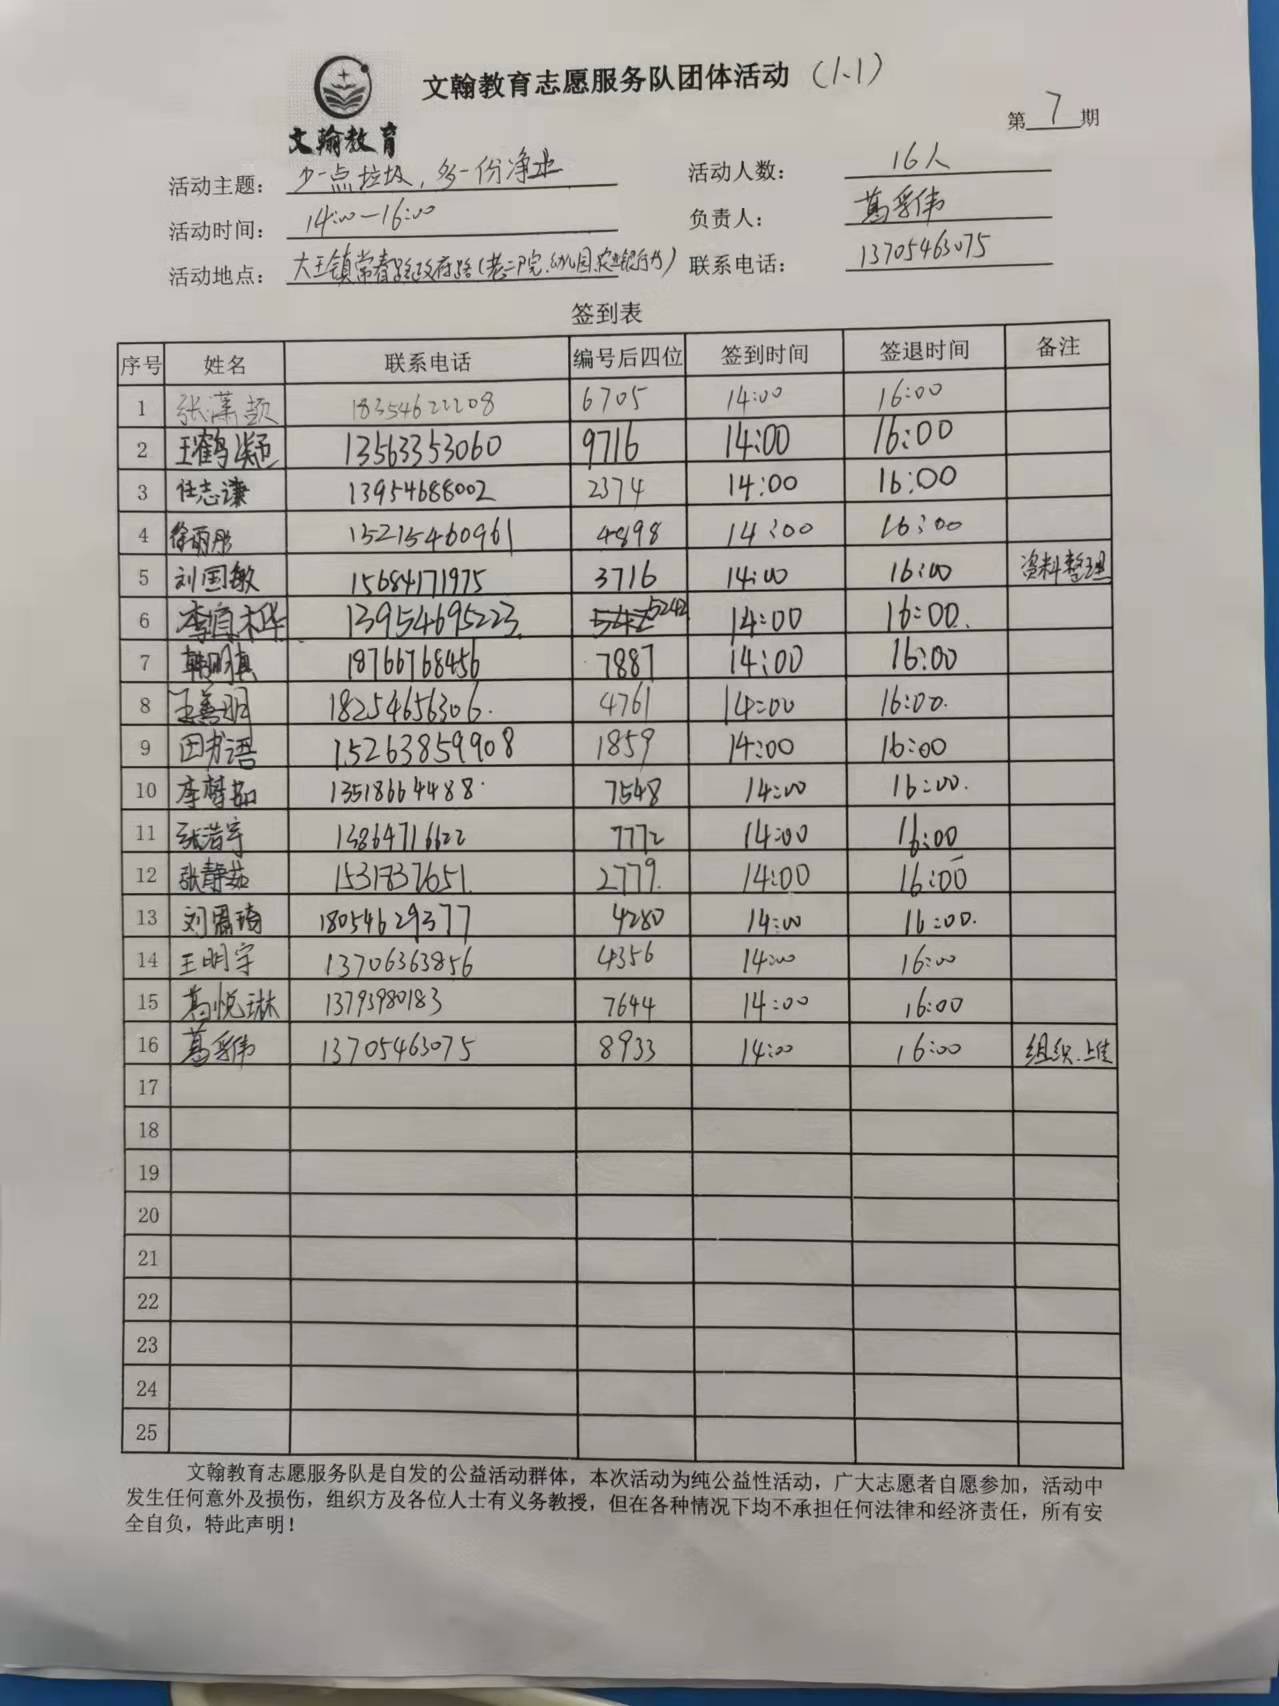 文翰教育志愿服务队团体活动 (1.1)
文翰教育
第 7 期
活动主题： 少一点垃圾，多一份净土 活动人数： 16人
活动时间： 14:00—16:00 负责人： 葛
活动地点： 大王镇常春路政府路(老二院.幼儿园.农业银行) 联系电话： 13705463075
签到表
序号 姓名 联系电话 编号后四位 签到时间 签退时间 备注
1 张潇 18354622208 6705 14:00 16:00
2 王鹤凝 13563353060 9716 14:00 16:00
3 任志谦 13954688002 2374 14:00 16:00
4 徐丽彤 15215460961 4898 14:00 16:00
5 刘国敏 15684171975 3716 14:00 16:00 资料整理
6 李 13954695223 5242 14:00 16:00
7 韩明真 18766768456 7887 14:00 16:00
8 王善明 18254656306 4761 14:00 16:00
9 田书语 15263859908 1859 14:00 16:00
10 李慧茹 13518664488 7548 14:00 16:00
11 张浩宇 13864716622 7772 14:00 16:00
12 张静茹 15317837651 2779 14:00 16:00
13 刘 琦 18054629377 4280 14:00 16:00
14 王明宇 13706363856 4356 14:00 16:00
15 葛悦琳 13793980183 7644 14:00 16:00
16 葛 13705463075 8933 14:00 16:00 组织.上传
17
18
19
20
21
22
23
24
25
文翰教育志愿服务队是自发的公益活动群体，本次活动为纯公益性活动，广大志愿者自愿参加，活动中
发生任何意外及损伤，组织方及各位人士有义务教授，但在各种情况下均不承担任何法律和经济责任，所有安
全自负，特此声明！